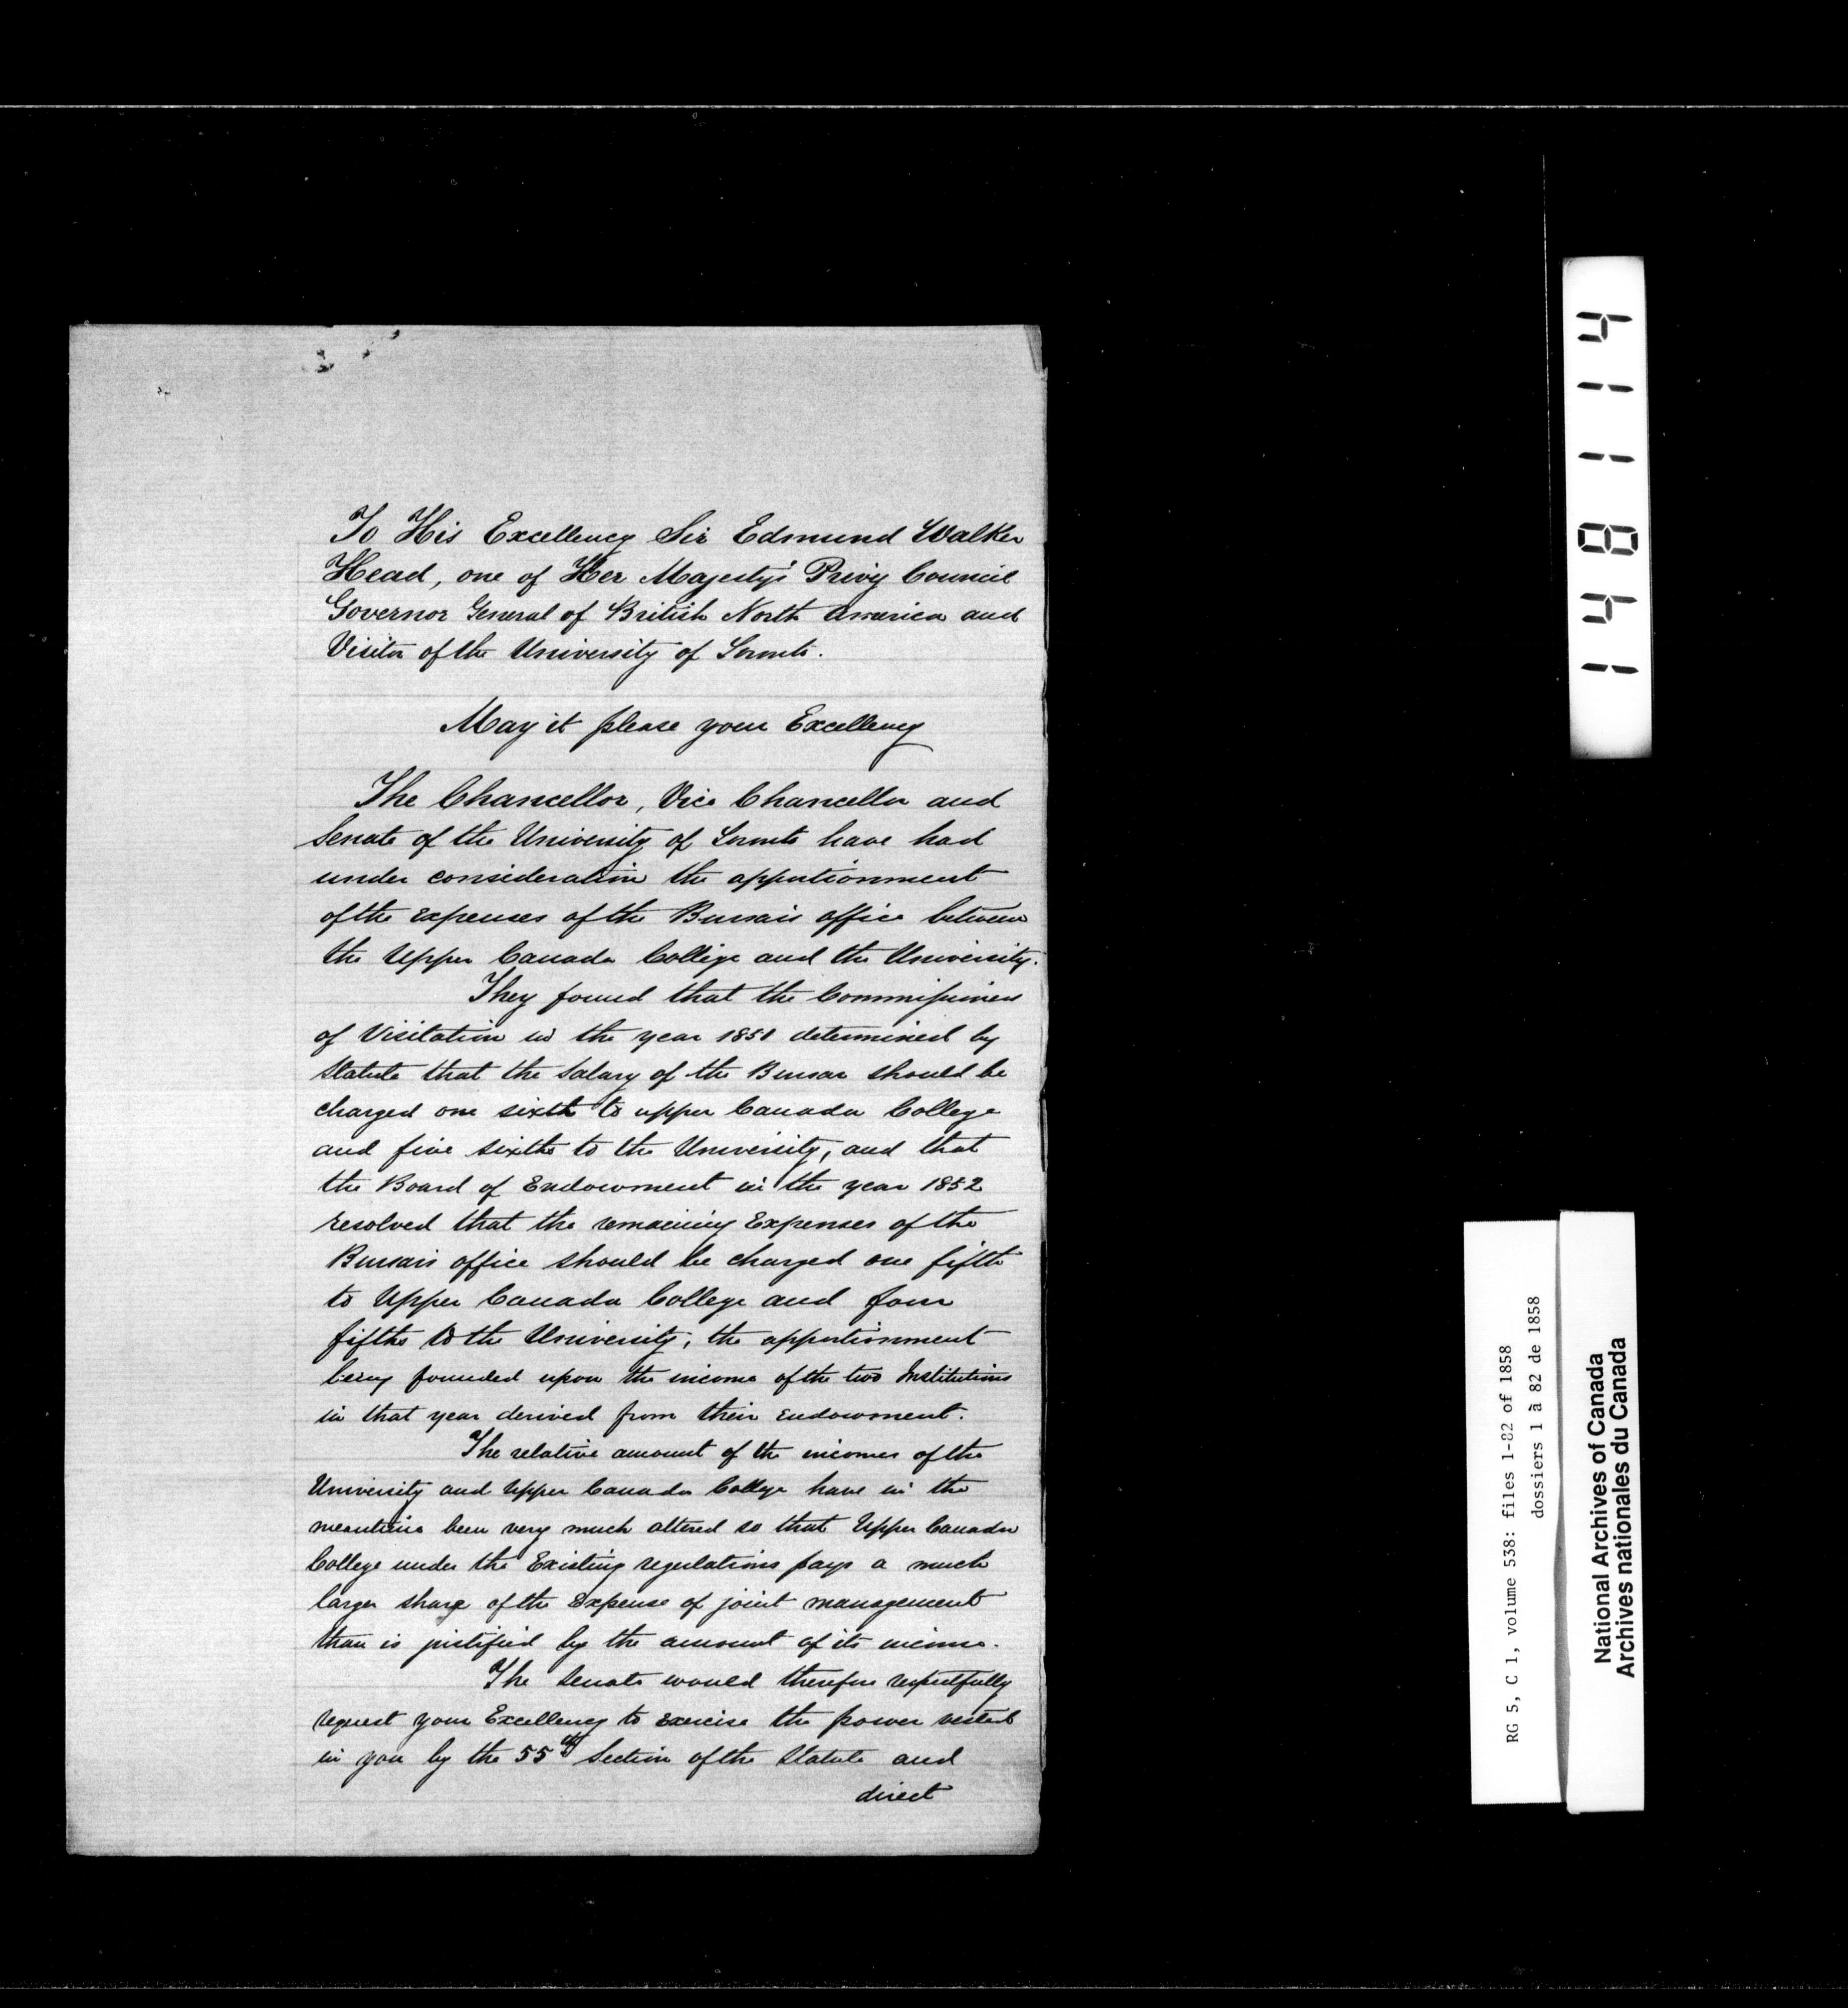 To His Excellency Sir Edmund Walker
Head, one of Her Majesty's Privy Council
Governor General of British North America and
Visitor of the University of Toronto.
May it please your Excellency
The Chancellor, Vice Chancellor and
Senate of the University of Toronto have had
under consideration the apportionment
of the expenses of the Bursars office between
the Upper Canada College and the University.
They found that the Commissioners
of Visitation in the year 1851 determined by
Statute that the Salary of the Bursar should be
charged one sixth to upper Canada College
and five sixths to the University, and that
the Board of Endowment in the year 1852
resolved that the remaining Expenses of the
Bursars office should be charged one fifth
to Upper Canada College and four
fifths to the University, the apportionment
being founded upon the income of the two Institutions
in that year derived from their endowment.
The relative amount of the incomes of the
University and Upper Canada College have in the
meantime been very much altered so that Upper Canada
College under the Existing regulations pays a much
larger share of the Expense of joint management
than is justified by the amount of its income.
The Senate would therefore respectfully
request your Excellency to exercise the power vested
in you by the 55th Section of the Statute and
direct
148114
RG 5, C 1, volume 538: files 1-82 of 1858
dossiers 1 à 82 de 1858
National Archives of Canada
Archives nationales du Canada